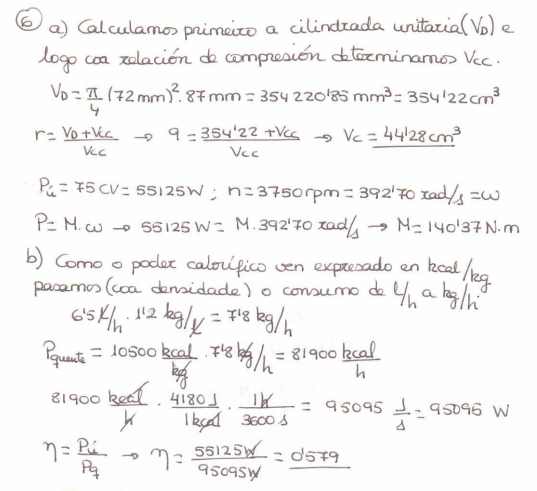 6 a) Calculamos primeiro a cilindrada unitaria (V_D) e
logo coa relación de compresión determinamos Vcc.
V_D = π/4 (72 mm)². 87 mm = 354 220'85 mm³ = 354'22 cm³
r = (V_D + Vcc)/Vcc → 9 = (354'22 + Vcc)/Vcc → Vc = 44'28 cm³
Pú = 75 CV = 55125 W ; n = 3750 rpm = 392'70 rad/s = ω
P = M. ω → 55125 W = M. 392'70 rad/s → M = 140'37 N·m
b) Como o poder calorífico ven expresado en kcal/kg
pasamos (coa densidade) o consumo de l/h a kg/h
6'5 l/h . 1'2 kg/l = 7'8 kg/h
Pquente = 10500 kcal/kg . 7'8 kg/h = 81900 kcal/h
81900 kcal/h . 4180 J/1 kcal . 1 h/3600 s = 95095 J/s = 95095 W
η = Pú/Pq → η = 55125 W/95095 W = 0'579